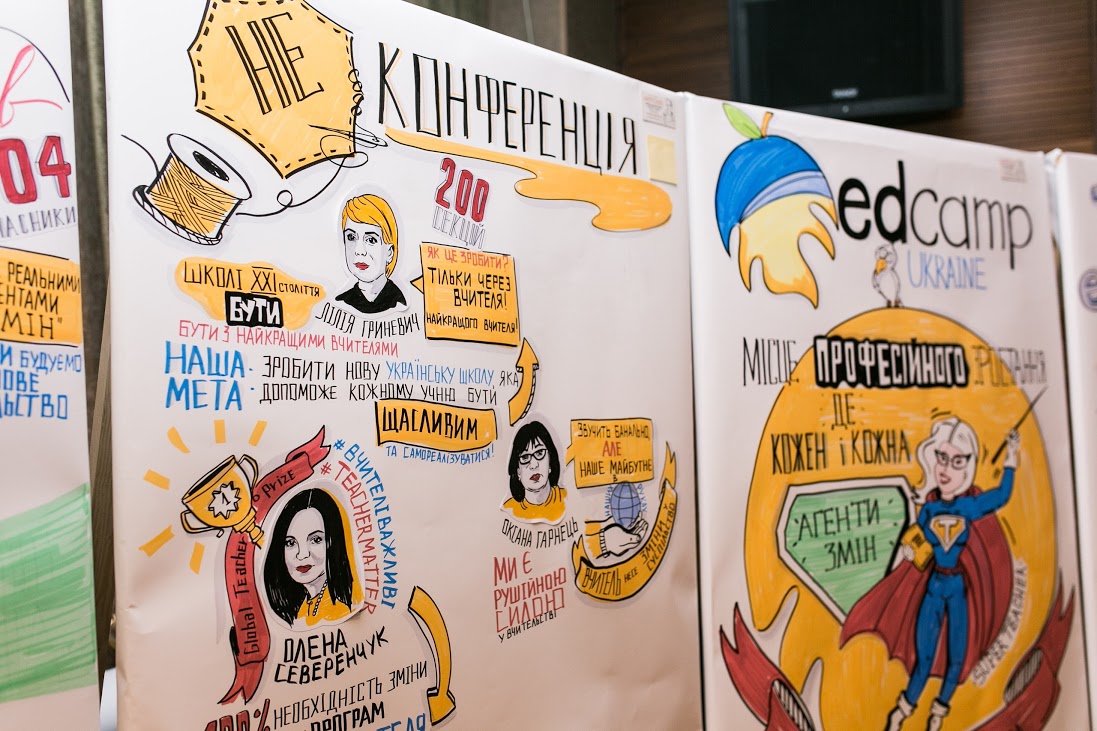 04
РЕАЛЬНИМИ
МІН"
БУДУЄМО
НЕ
КОНФЕРЕНЦІЯ
200
СЕКЦІЙ
ШКОЛІ XXI СТОЛІТТЯ
БУТИ
БУТИ З НАЙКРАЩИМИ ВЧИТЕЛЯМИ
ЛІЛІЯ ГРИНЕВИЧ
ЯК ЦЕ ЗРОБИТИ?
ТІЛЬКИ ЧЕРЕЗ
ВЧИТЕЛЯ!
НАЙКРАЩОГО ВЧИТЕЛЯ!
НАША
МЕТА
- ЗРОБИТИ НОВУ УКРАЇНСЬКУ ШКОЛУ, ЯКА
ДОПОМОЖЕ КОЖНОМУ УЧНЮ БУТИ
ЩАСЛИВИМ
ТА САМОРЕАЛІЗУВАТИСЯ!
Global Teacher Prize
#ВЧИТЕЛІВАЖЛИВІ
#TEACHERMATTER
ОЛЕНА
СЕВЕРЕНЧУК
100% НЕОБХІДНІСТЬ ЗМІНИ
ПРОГРАМ
ОКСАНА ГАРНЕЦЬ
ЗВУЧИТЬ БАНАЛЬНО,
АЛЕ
НАШЕ МАЙБУТНЄ
В
ВЧИТЕЛЬ НЕСЕ ЗМІНИ
МИ Є
РУШІЙНОЮ
СИЛОЮ
У ВЧИТЕЛЬСТВІ
edcamp
UKRAINE
МІСЦЕ ПРОФЕСІЙНОГО ЗРОСТАННЯ
ДЕ
КОЖЕН І КОЖНА
АГЕНТИ
ЗМІН
SUPER TEACHER